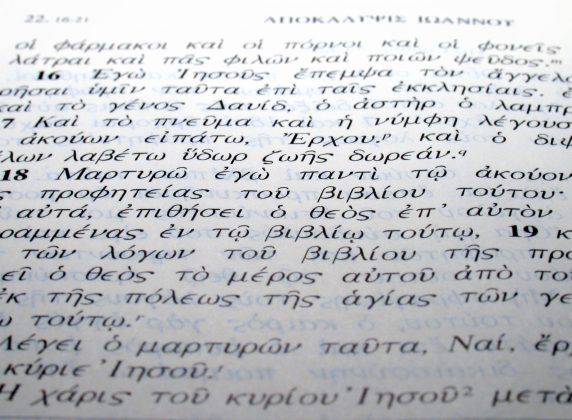 22. 16-21 ΑΠΟΚΑΛΥΨΙΣ ΙΩΑΝΝΟΥ
οἱ φάρμακοι καὶ οἱ πόρνοι καὶ οἱ φονεῖς
λάτραι καὶ πᾶς φιλῶν καὶ ποιῶν ψεῦδος.ᵐ
16 Ἐγὼ Ἰησοῦς ἔπεμψα τὸν ἄγγελο
ρῆσαι ὑμῖν ταῦτα ἐπὶ ταῖς ἐκκλησίαις. ἐ
καὶ τὸ γένος Δαυίδ, ὁ ἀστὴρ ὁ λαμπρ
7 Καὶ τὸ πνεῦμα καὶ ἡ νύμφη λέγουσ
ἀκούων εἰπάτω, Ἔρχου.ᵖ καὶ ὁ διψ
έλων λαβέτω ὕδωρ ζωῆς δωρεάν.q
18 Μαρτυρῶ ἐγὼ παντὶ τῷ ἀκούον
ς προφητείας τοῦ βιβλίου τούτου·
αὐτά, ἐπιθήσει ὁ θεὸς ἐπ' αὐτὸν
ραμμένας ἐν τῷ βιβλίῳ τούτῳ, 19 κ
τῶν λόγων τοῦ βιβλίου τῆς προ
εῖ ὁ θεὸς τὸ μέρος αὐτοῦ ἀπὸ το
ἐκ τῆς πόλεως τῆς ἁγίας τῶν γε
ῳ τούτῳ.ʳ
Λέγει ὁ μαρτυρῶν ταῦτα, Ναί, ἔρ
κύριε Ἰησοῦ.
Ἡ χάρις τοῦ κυρίου Ἰησοῦ² μετὰ